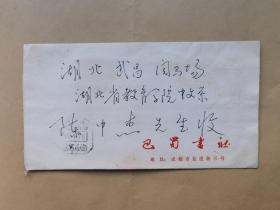 湖北 武昌 阅马场
湖北省教育学院 牧系
陈中杰先生收
巴蜀书社
地址：成都市盐道街三号